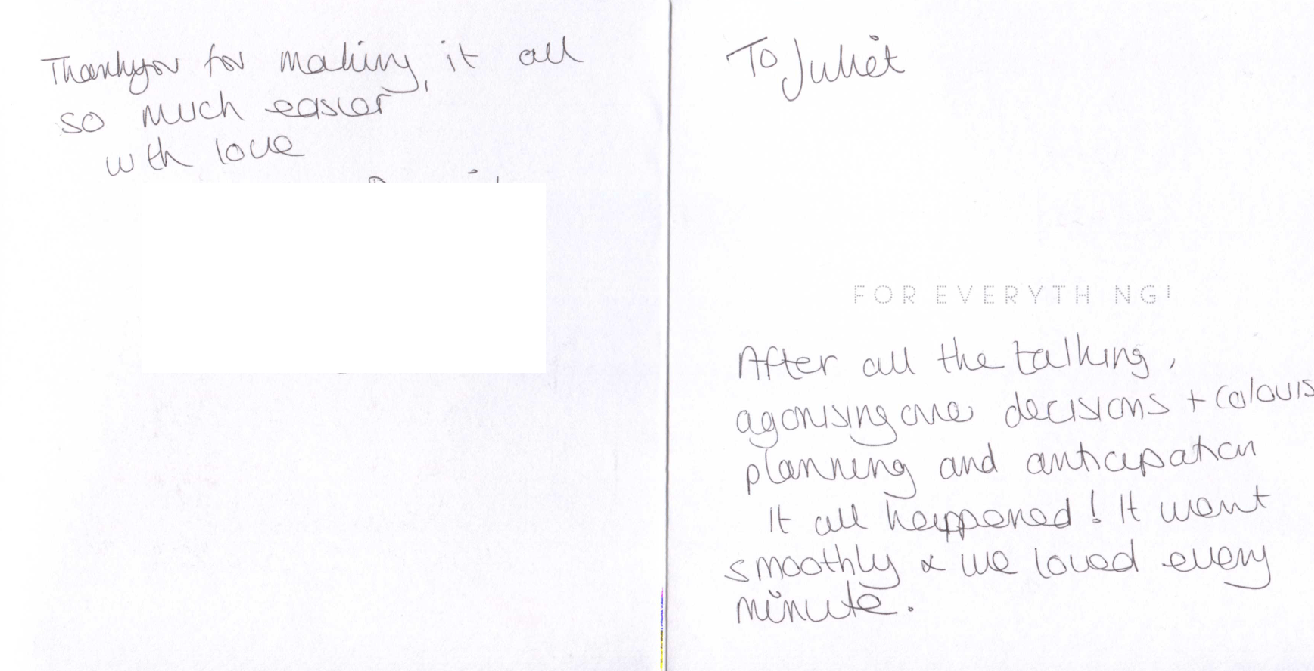 Thankyou for making it all
so much easier,
with love
To Juliet
FOR EVERYTHING!
After all the talking,
agonising over decisions + colours
planning and anticipation
It all happened! It went
smoothly & we loved every
minute.